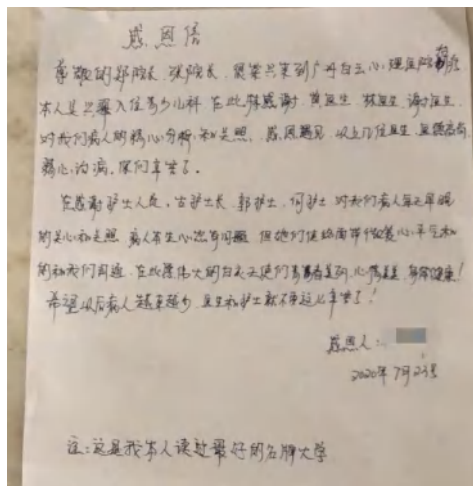 感恩信
尊敬的郑院长、张院长,
本人是 入住青少儿科 在此特感谢 黄医生 林医生 谢医生
对我们病人的精心分析和关照。感恩遇见 以上几位医生 医德高尚
精心治病,你们辛苦了。
在感谢护士人员,古护士长 郭护士 何护士 对我们病人每天早晚
的关心和关照 病人有生心态有问题 但她们总 面带微笑心平气和
的和我们沟通 在此 伟大的白衣天使们青春美丽 心情美美 身体健康!
希望以后病人越来越少 医生和护士就不再这么辛苦了!
感恩人:
2020年7月23号
注:这是我本人读过最好的名牌大学